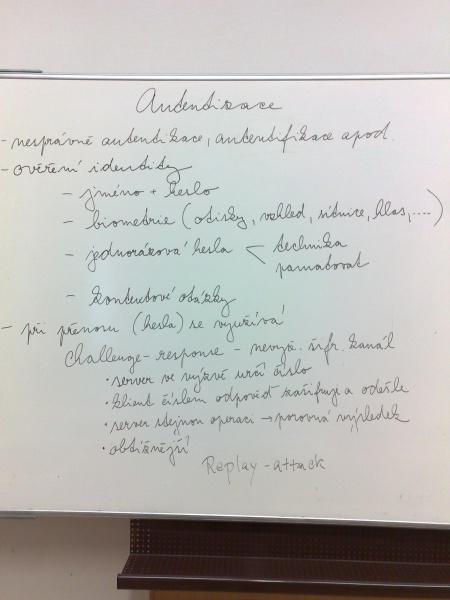 Autentizace
- nesprávně autentikace, autentifikace apod.
- ověření identity
- jméno + heslo
- biometrie (otisky, vzhled, sítnice, hlas, ....)
- jednorázová hesla < technika
pamatovat
- kontextové otázky
- při přenosu (hesla) se využívá
Challenge-response - nevyž. šifr. kanál
· server ve výzvě určí číslo
· klient číslem odpověď zašifruje a odešle
· server stejnou operaci → porovná výsledek
· obtížnější
Replay-attack